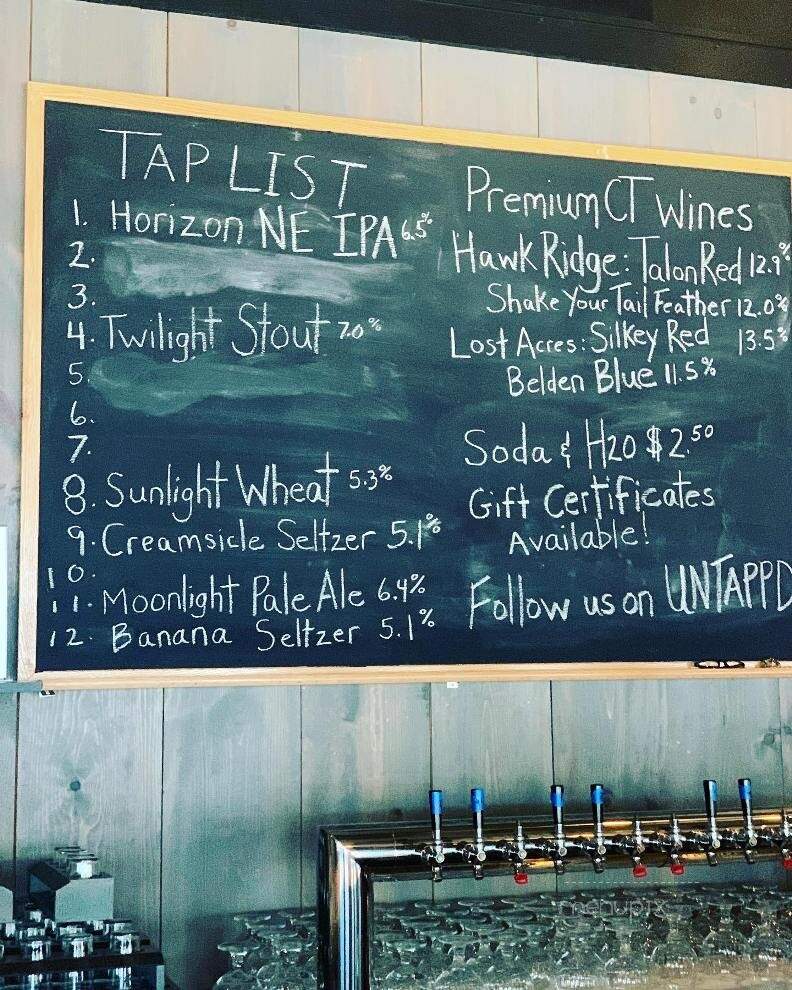 TAP LIST
1. Horizon NE IPA 6.5%
2.
3.
4. Twilight Stout 7.0%
5.
6.
7.
8. Sunlight Wheat 5.3%
9. Creamsicle Seltzer 5.1%
10.
11. Moonlight Pale Ale 6.4%
12. Banana Seltzer 5.1%
Premium CT Wines
Hawk Ridge: Talon Red 12.9%
Shake Your Tail Feather 12.0%
Lost Acres: Silkey Red 13.5%
Belden Blue 11.5%
Soda & H2O $2.50
Gift Certificates
Available!
Follow us on UNTAPPD
menupix